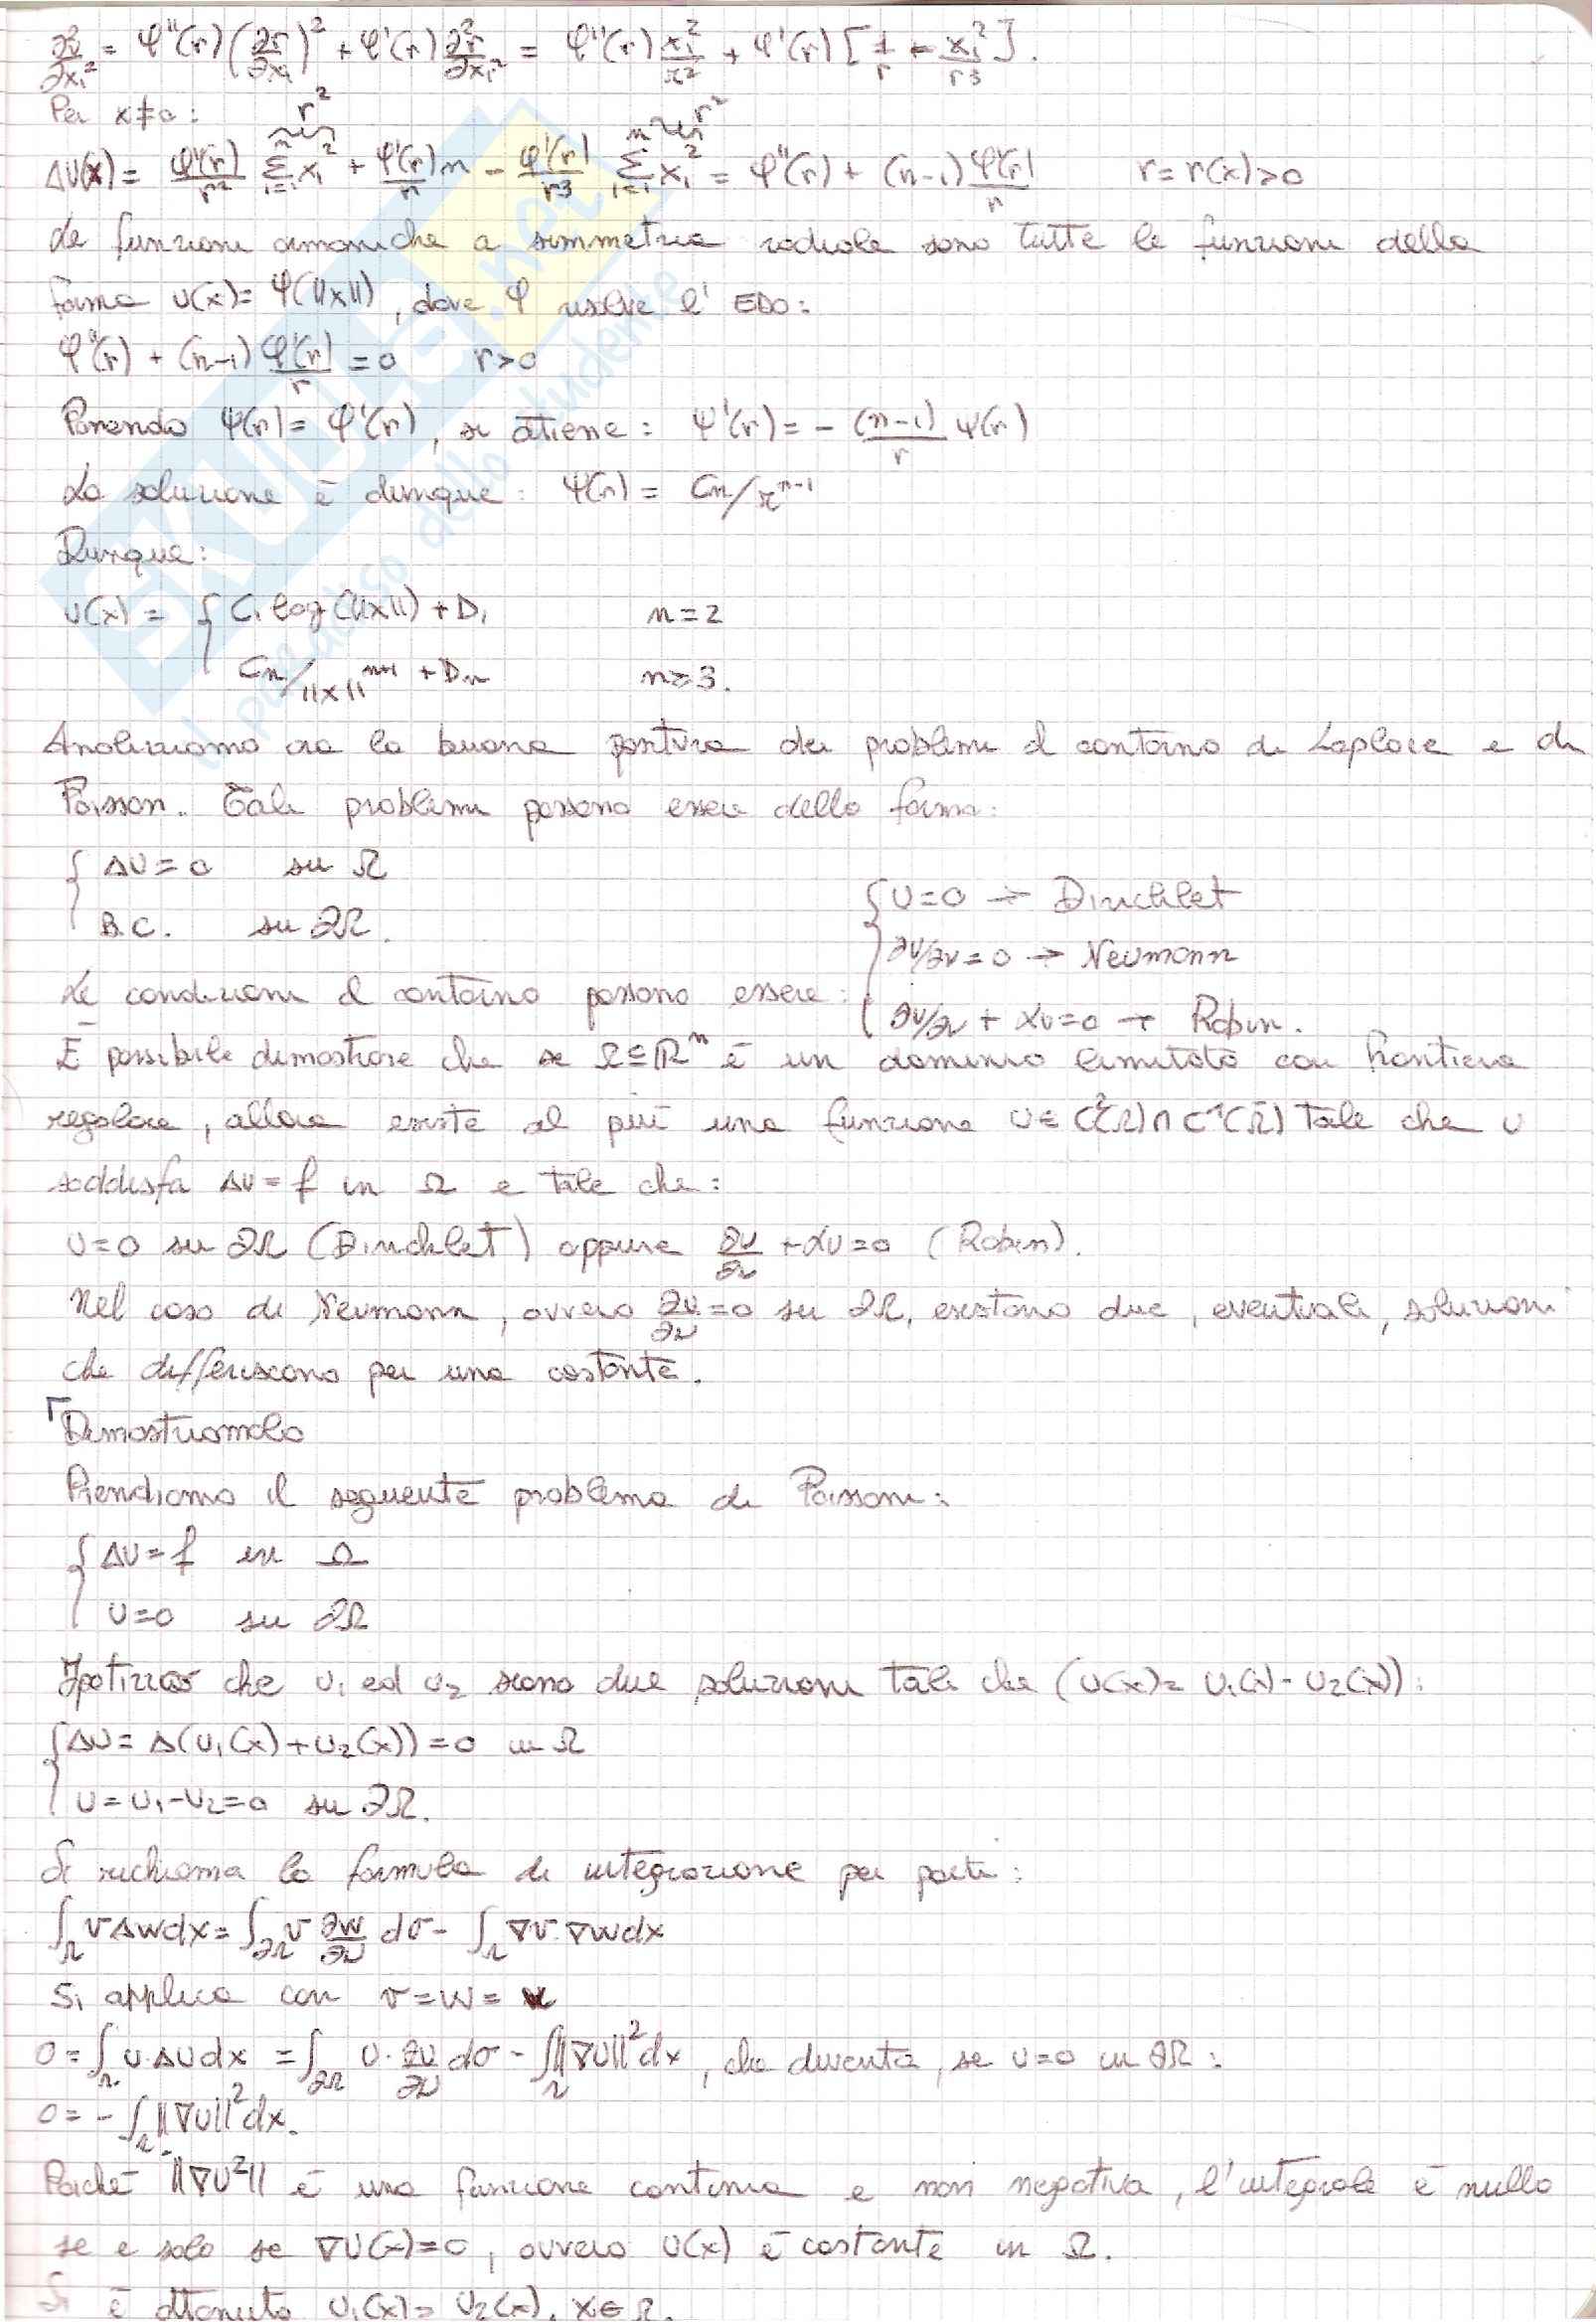 ∂²u/∂x₁² = φ''(r)(∂r/∂x₁)² + φ'(r) ∂²r/∂x₁² = φ''(r) x₁²/r² + φ'(r)[1/r - x₁²/r³].
Per x≠0:
Δu(x) = φ''(r)/r² Σᵢ₌₁ⁿ xᵢ² (r²) + φ'(r)/r n - φ'(r)/r³ Σᵢ₌₁ⁿ xᵢ² (r²) = φ''(r) + (n-1) φ'(r)/r r = r(x)>0
Le funzioni armoniche a simmetria radiale sono tutte le funzioni della
forma u(x) = φ(||x||), dove φ risolve l'EDO:
φ''(r) + (n-1) φ'(r)/r = 0 r>0
Ponendo ψ(r) = φ'(r), si ottiene: ψ'(r) = - (n-1)/r ψ(r)
La soluzione è dunque: ψ(r) = Cn/rⁿ⁻¹
Dunque:
u(x) = { C₁ log(||x||) + D₁ n=2
Cn/||x||ⁿ⁺¹ + Dn n≥3.
Analizziamo ora la buona positura dei problemi al contorno di Laplace e di
Poisson. Tali problemi possono essere della forma:
{ Δu = 0 su Ω
B.C. su ∂Ω.
{ u=0 → Dirichlet
∂u/∂ν = 0 → Neumann
Le condizioni al contorno possono essere:
∂u/∂ν + αu = 0 → Robin.
È possibile dimostrare che se Ω⊆ℝⁿ è un dominio limitato con frontiera
regolare, allora esiste al più una funzione u∈C²(Ω)∩C¹(Ω̄) tale che u
soddisfa Δu = f in Ω e tale che:
u=0 su ∂Ω (Dirichlet) oppure ∂u/∂ν + αu = 0 (Robin).
Nel caso di Neumann, ovvero ∂u/∂ν = 0 su ∂Ω, esistono due, eventuali, soluzioni
che differiscono per una costante.
Dimostriamolo
Prendiamo il seguente problema di Poisson:
{ Δu = f in Ω
u=0 su ∂Ω
Ipotizzo che u₁ ed u₂ siano due soluzioni tali che (u(x) = u₁(x) - u₂(x)):
{ Δu = Δ(u₁(x) + u₂(x)) = 0 in Ω
u = u₁ - u₂ = 0 su ∂Ω.
Si richiama la formula di integrazione per parti:
∫_Ω v Δw dx = ∫_∂Ω v ∂w/∂ν dσ - ∫_Ω ∇v·∇w dx
Si applica con v = w = u
0 = ∫_Ω u·Δu dx = ∫_∂Ω u·∂u/∂ν dσ - ∫_Ω ||∇u||² dx, che diventa, se u=0 in ∂Ω:
0 = - ∫_Ω ||∇u||² dx.
Poiché ||∇u²|| è una funzione continua e non negativa, l'integrale è nullo
se e solo se ∇u(x) = 0, ovvero u(x) è costante in Ω.
Si è ottenuto u₁(x) = u₂(x), x∈Ω.